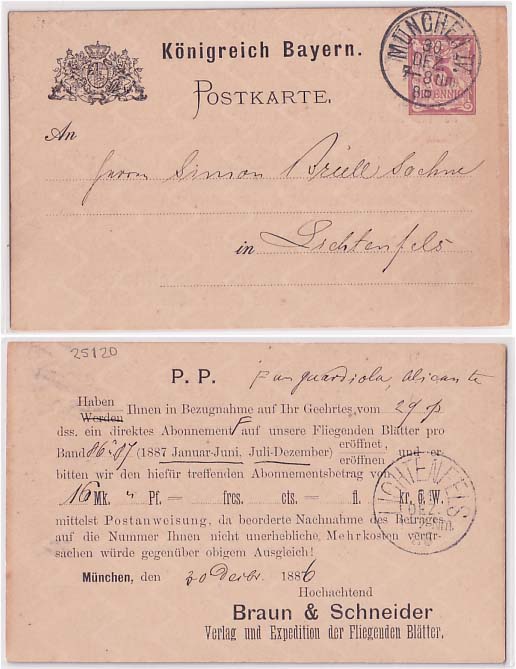 Königreich Bayern.
POSTKARTE.
MÜNCHEN
30
DEZ
7-8 Nm.
86
PFENNIG
An
Herrn Simon Brüll Söhne
in Lichtenfels
25120
P. P.
Guardiola, Alicante
Haben
Werden Ihnen in Bezugnahme auf Ihr Geehrtes vom 29
dss. ein direktes Abonnement auf unsere Fliegenden Blätter pro
Band 86 & 87 (1887 Januar-Juni, Juli-Dezember) eröffnet, und er-
eröffnen
bitten wir den hiefür treffenden Abonnementsbetrag von
16 Mk. " Pf. — frcs. — cts. — fl. — kr. ö. W.
mittelst Postanweisung, da beorderte Nachnahme des Betrages
auf die Nummer Ihnen nicht unerhebliche Mehrkosten verur-
sachen würde gegenüber obigem Ausgleich!
LICHTENFELS
DEZ.
86
München, den 30 Dezbr. 1886
Hochachtend
Braun & Schneider
Verlag und Expedition der Fliegenden Blätter.